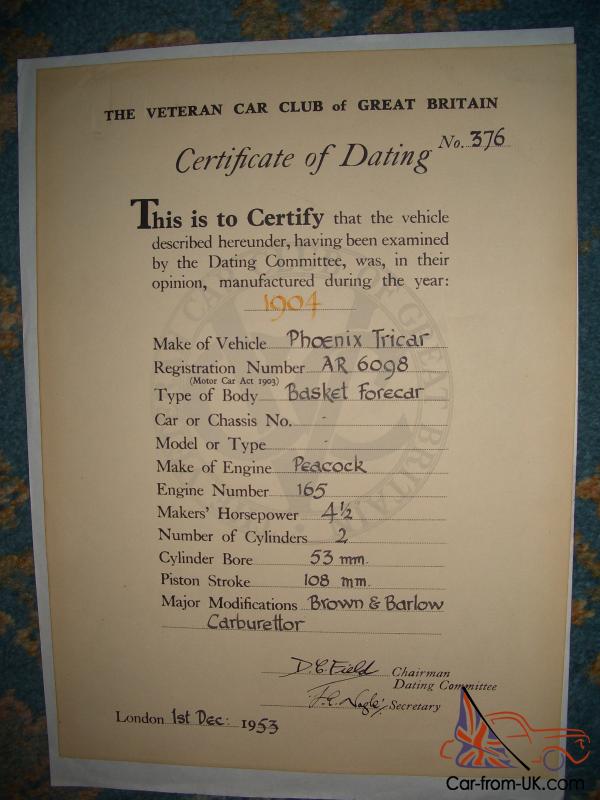 THE VETERAN CAR CLUB of GREAT BRITAIN
Certificate of Dating No. 376
This is to Certify that the vehicle
described hereunder, having been examined
by the Dating Committee, was, in their
opinion, manufactured during the year:
1904
Make of Vehicle Phoenix Tricar
Registration Number AR 6098
(Motor Car Act 1903)
Type of Body Basket Forecar
Car or Chassis No. -
Model or Type -
Make of Engine Peacock
Engine Number 165
Makers' Horsepower 4½
Number of Cylinders 2
Cylinder Bore 53 mm.
Piston Stroke 108 mm.
Major Modifications Brown & Barlow
Carburettor
D.C. Field Chairman
Dating Committee
F.E. Nagle Secretary
London 1st Dec: 1953
Car-from-UK.com